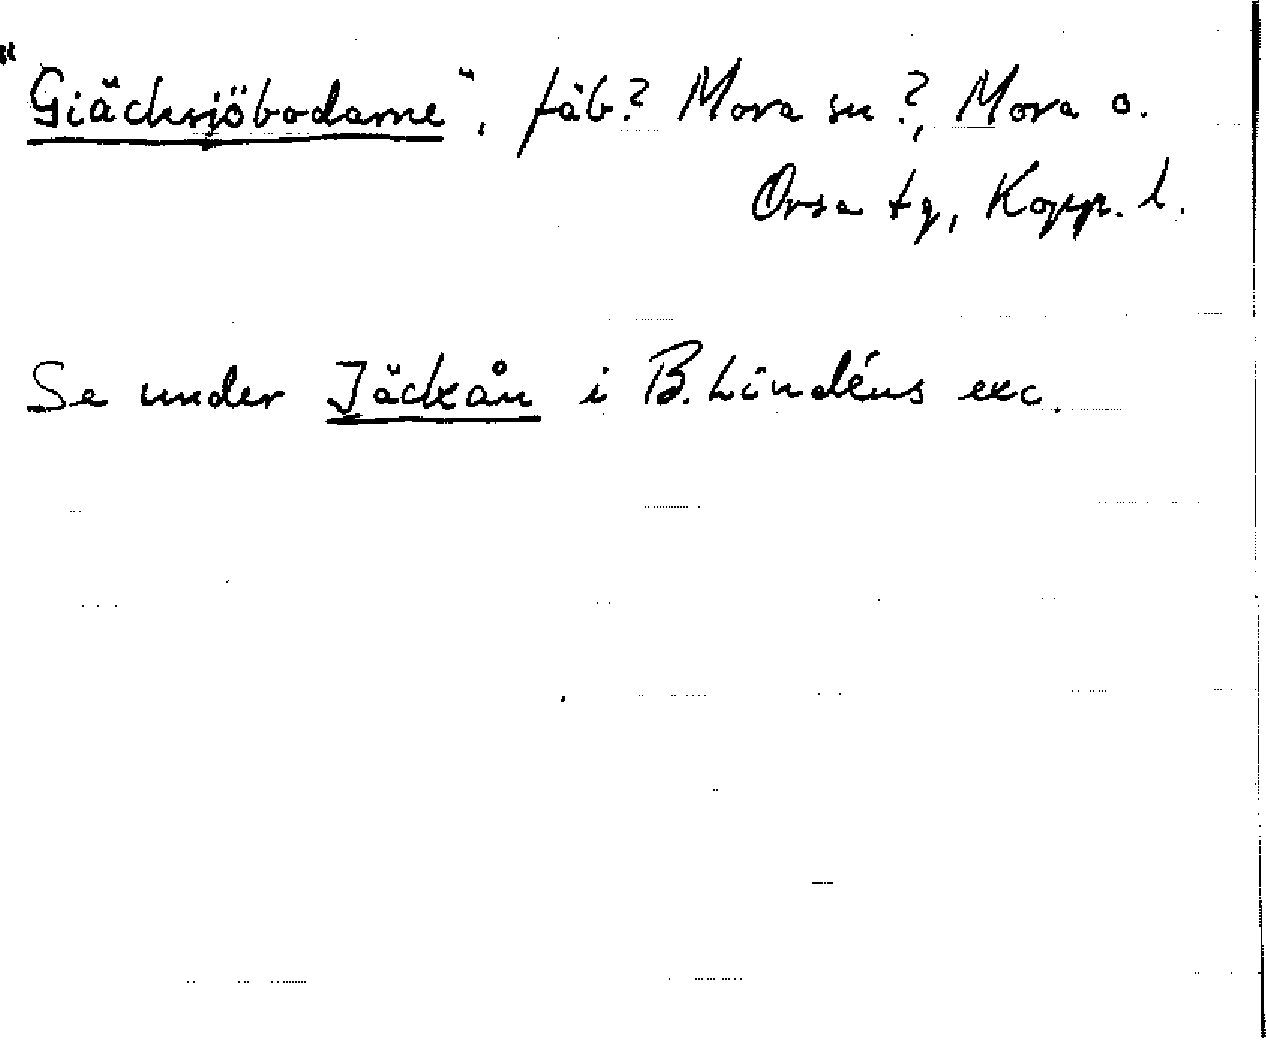 "Giäcksjöbodarne", fäb? Mora sn?, Mora o.
Orsa tg, Kopp. l.
Se under Jäckån i B. Lindéns exc.